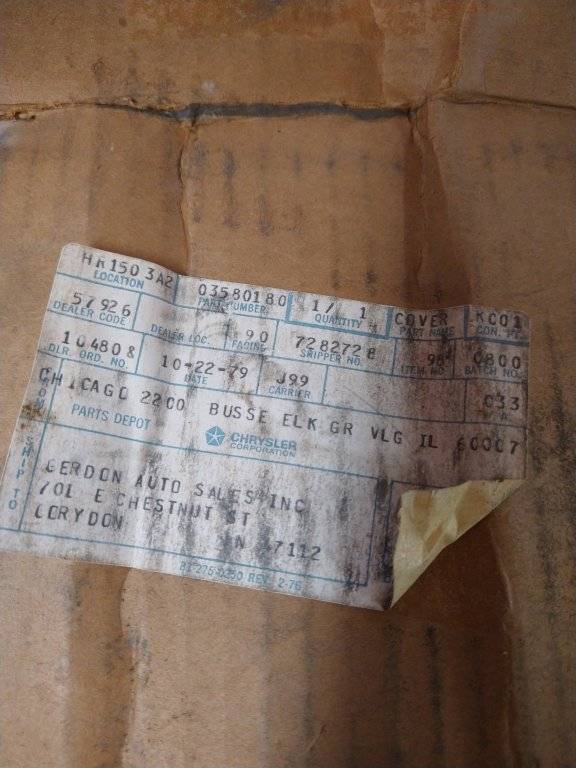 HR150 3A2 03580180 1/ 1 COVER KC01
LOCATION PART NUMBER QUANTITY PART NAME CON. PT.
57926 90 728272 8 98 0800
DEALER CODE DEALER LOC. FACING SHIPPER NO. ITEM NO. BATCH NO.
10480 8 10-22-79 J99 033
DLR. ORD. NO. DATE CARRIER
CHICAGO 2200 BUSSE ELK GR VLG IL 60007
PARTS DEPOT CHRYSLER
CORPORATION
SHIP TO
GERDON AUTO SALES INC
701 E CHESTNUT ST
CORYDON IN 47112
REV. 2-76